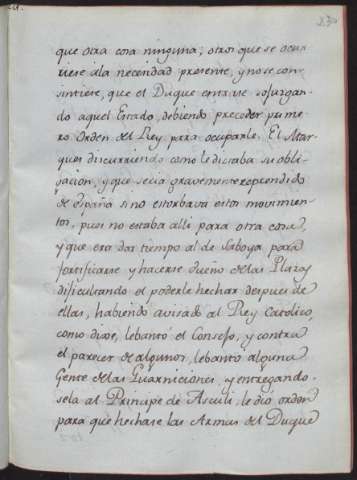 que otra cosa ninguna; otros que se ocur
riese a la necesidad presente, y no se con
sintiese, que el Duque entrase sojuzgan-
do aquel Estado, debiendo preceder prime
ro orden del Rey para ocuparle. El Mar
ques discurriendo como le dictaba su obli-
gacion, y que seria gravemente reprendido
de españa si no estorbava estos movimien-
tos, pues no estaba alli para otra cosa,
y que era dar tiempo al de Saboya para
fortificarse y hacerse dueño de las Plazas
dificultando el poderle hechar despues de
ellas, habiendo avisado al Rey Catolico,
como dixe, lebantó el Consejo, y contra
el parecer de algunos, lebantó alguna
Gente de las Guarniciones, y entregando-
sela al Principe de Asculi, le dio orden
para que hechase las Armas del Duque